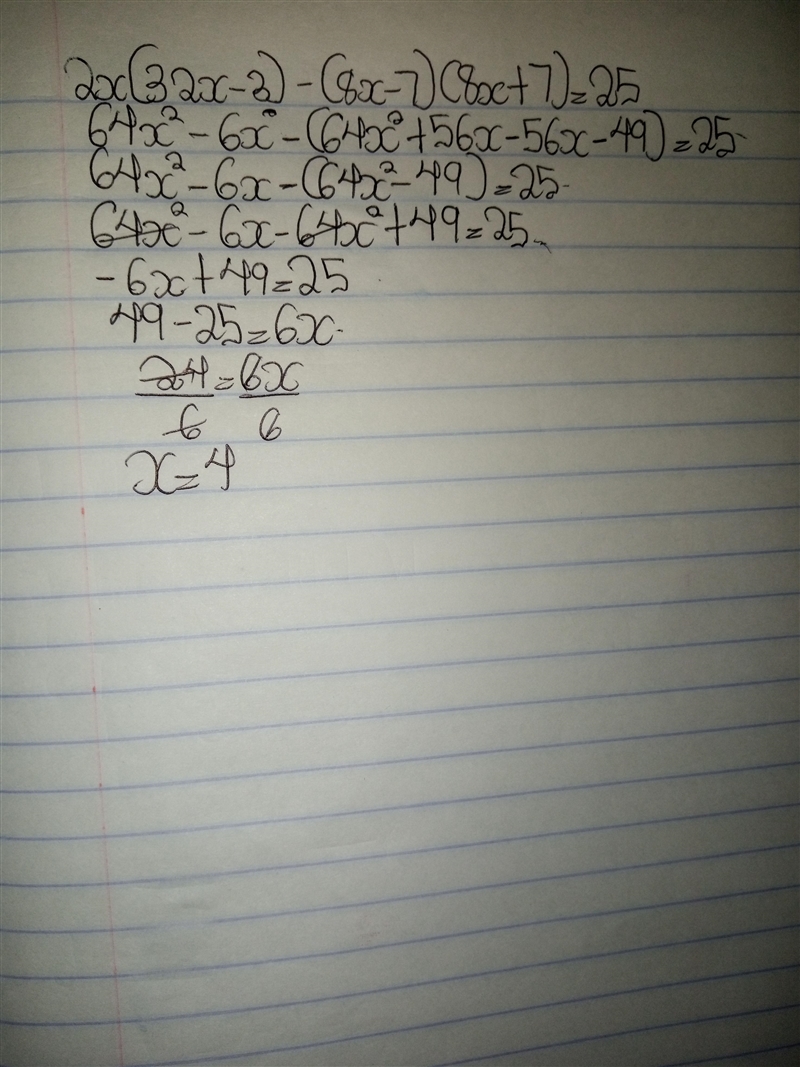 2x(32x-3)-(8x-7)(8x+7)=25
64x²-6x-(64x²+56x-56x-49)=25
64x²-6x-(64x²-49)=25
64x²-6x-64x²+49=25
-6x+49=25
49-25=6x
24/6=6x/6
x=4